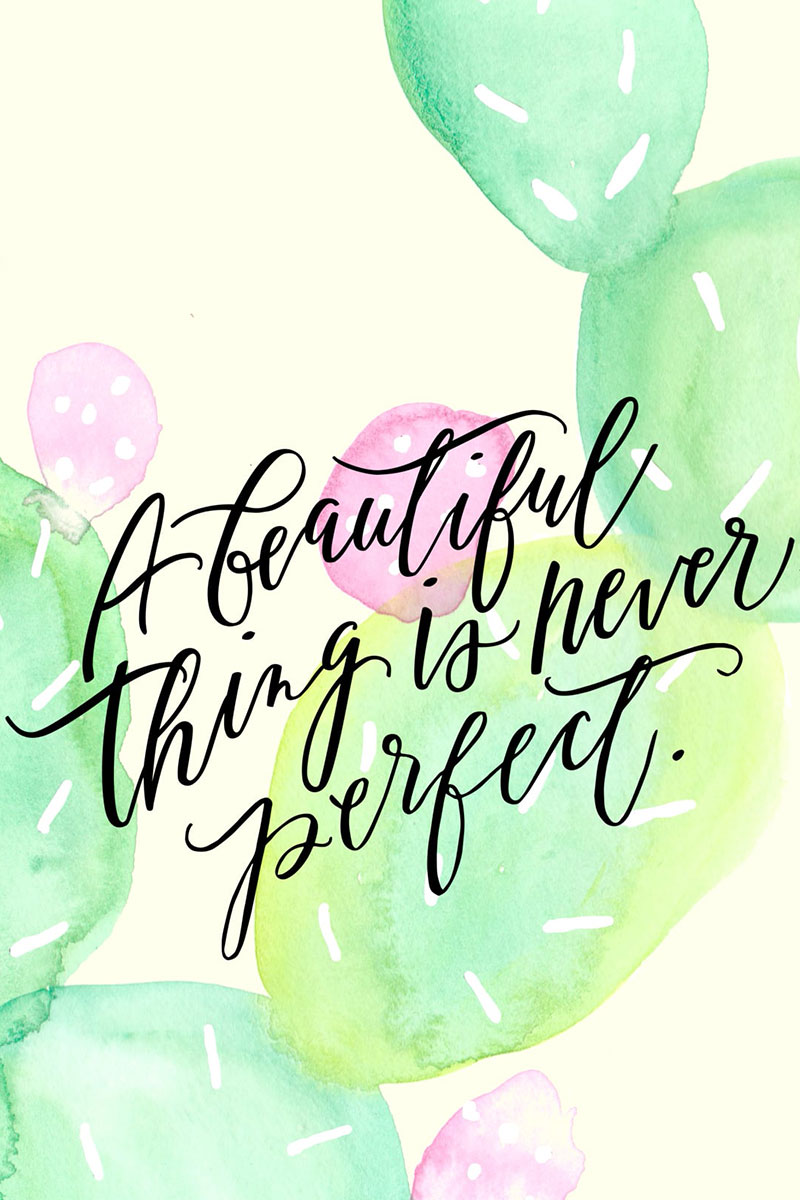 A beautiful
thing is never
perfect.